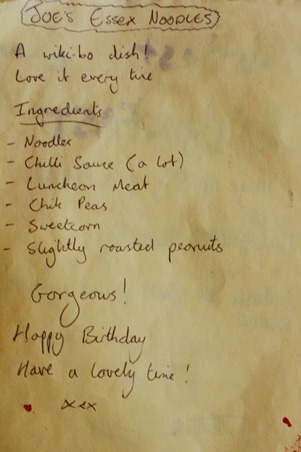 JOE'S ESSEX NOODLES
A wiki-bo dish!
Love it every time
Ingredients
- Noodles
- Chilli Sauce (a lot)
- Luncheon Meat
- Chik Peas
- Sweetcorn
- Slightly roasted peanuts
Gorgeous!
Happy Birthday
Have a lovely time!
xxx